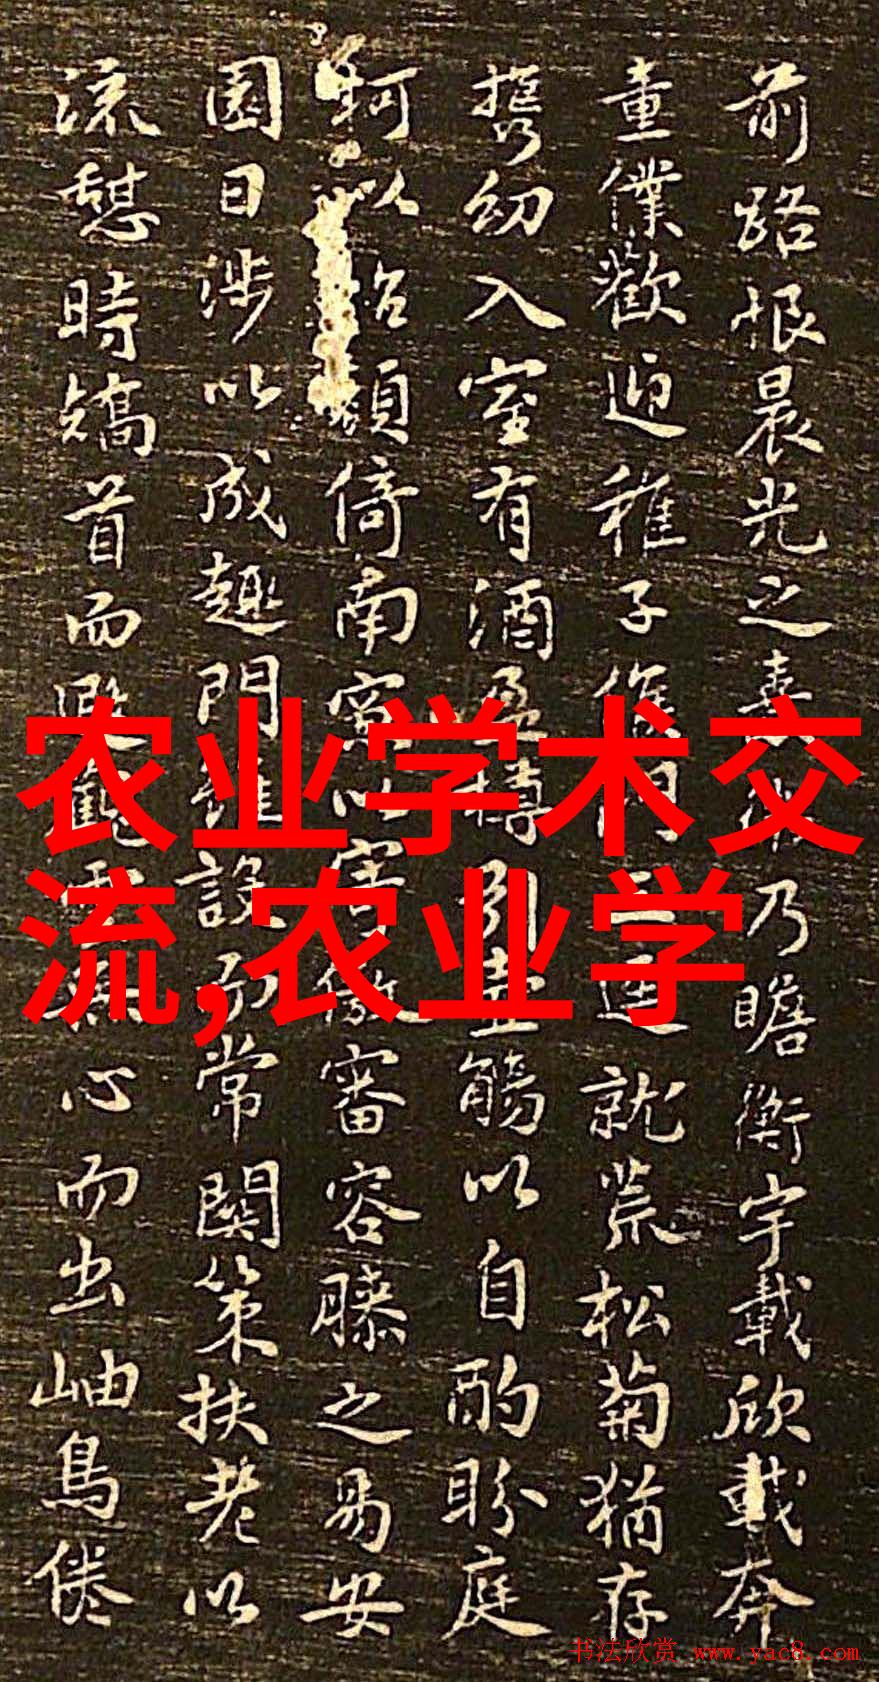 前路恨晨光之熹微乃瞻衡宇載欣載奔
童僕歡迎稚子候門三逕就荒松菊猶存
携幼入室有酒盈樽引壺觴以自酌盼庭
柯以怡顏倚南窓以寄傲審容膝之易安
園日涉以成趣門雖設而常関策扶老以
流憩時矯首而遐觀雲無心而出岫鳥倦
农业学术交
流,农业学
书法欣赏 www.yac8.com